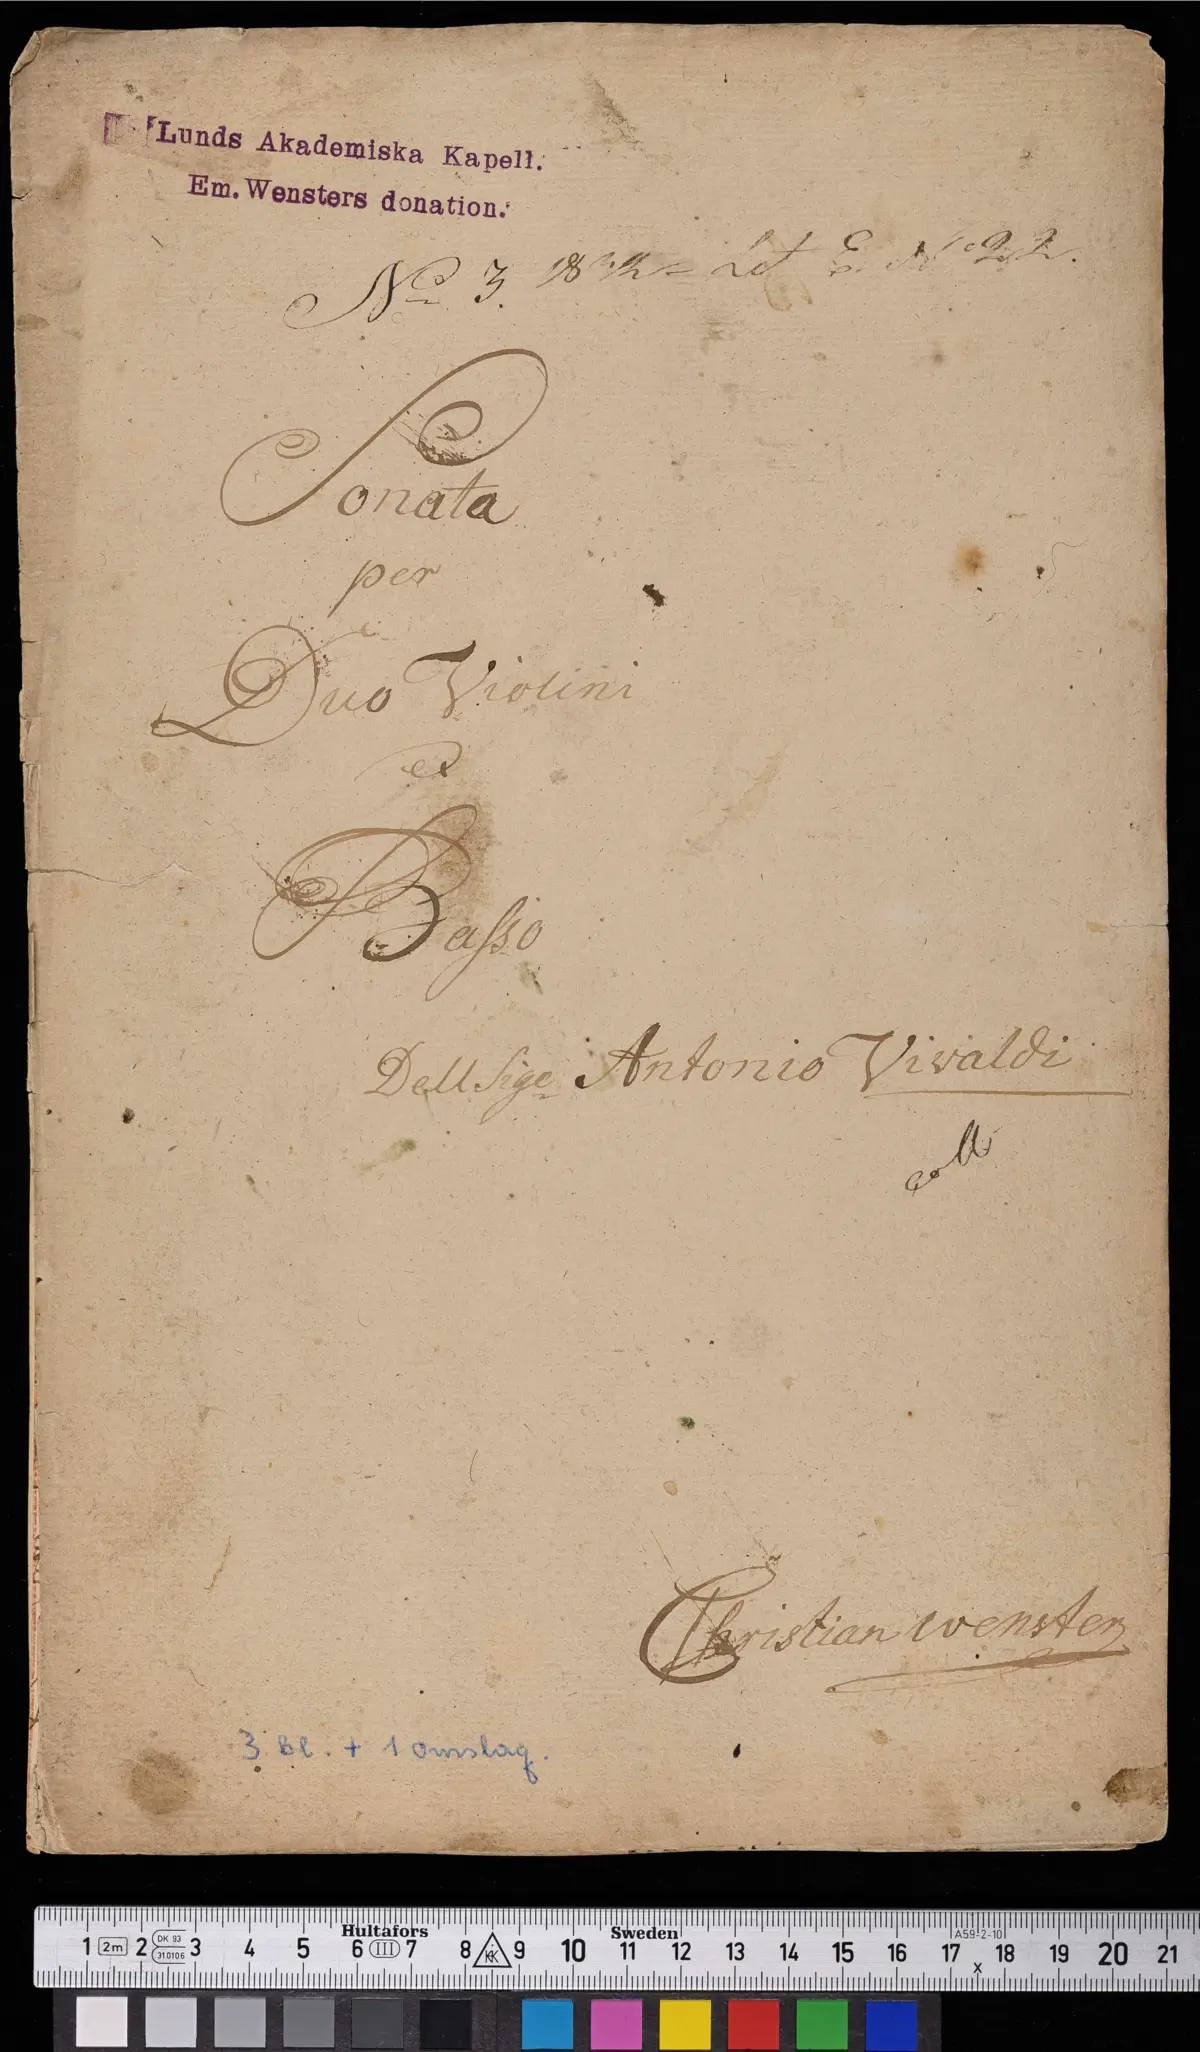 Lunds Akademiska Kapell.
Em. Wensters donation.
No 3. Lit E. No 22.
Sonata
per
Duo Violini
et
Basso
Dell Sige Antonio Vivaldi
coll
Christian Wenster
3 Bl. + 1 omslag.
Hultafors Sweden
1 2m 2 DK 93 3 4 5 6 III 7 8 9 10 11 12 13 14 15 16 17 18 19 20 21
A59-2-10
x